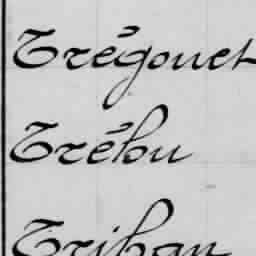 Trégouet
Trébu
Triban